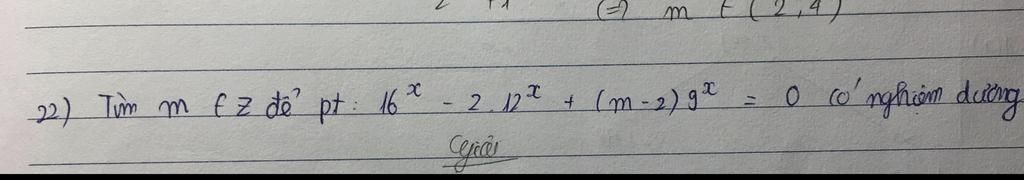 (=) m ∈ (2,4)
22) Tìm m ∈ Z để pt: 16^x - 2.12^x + (m-2) 9^x = 0 có nghiệm dương
Giải